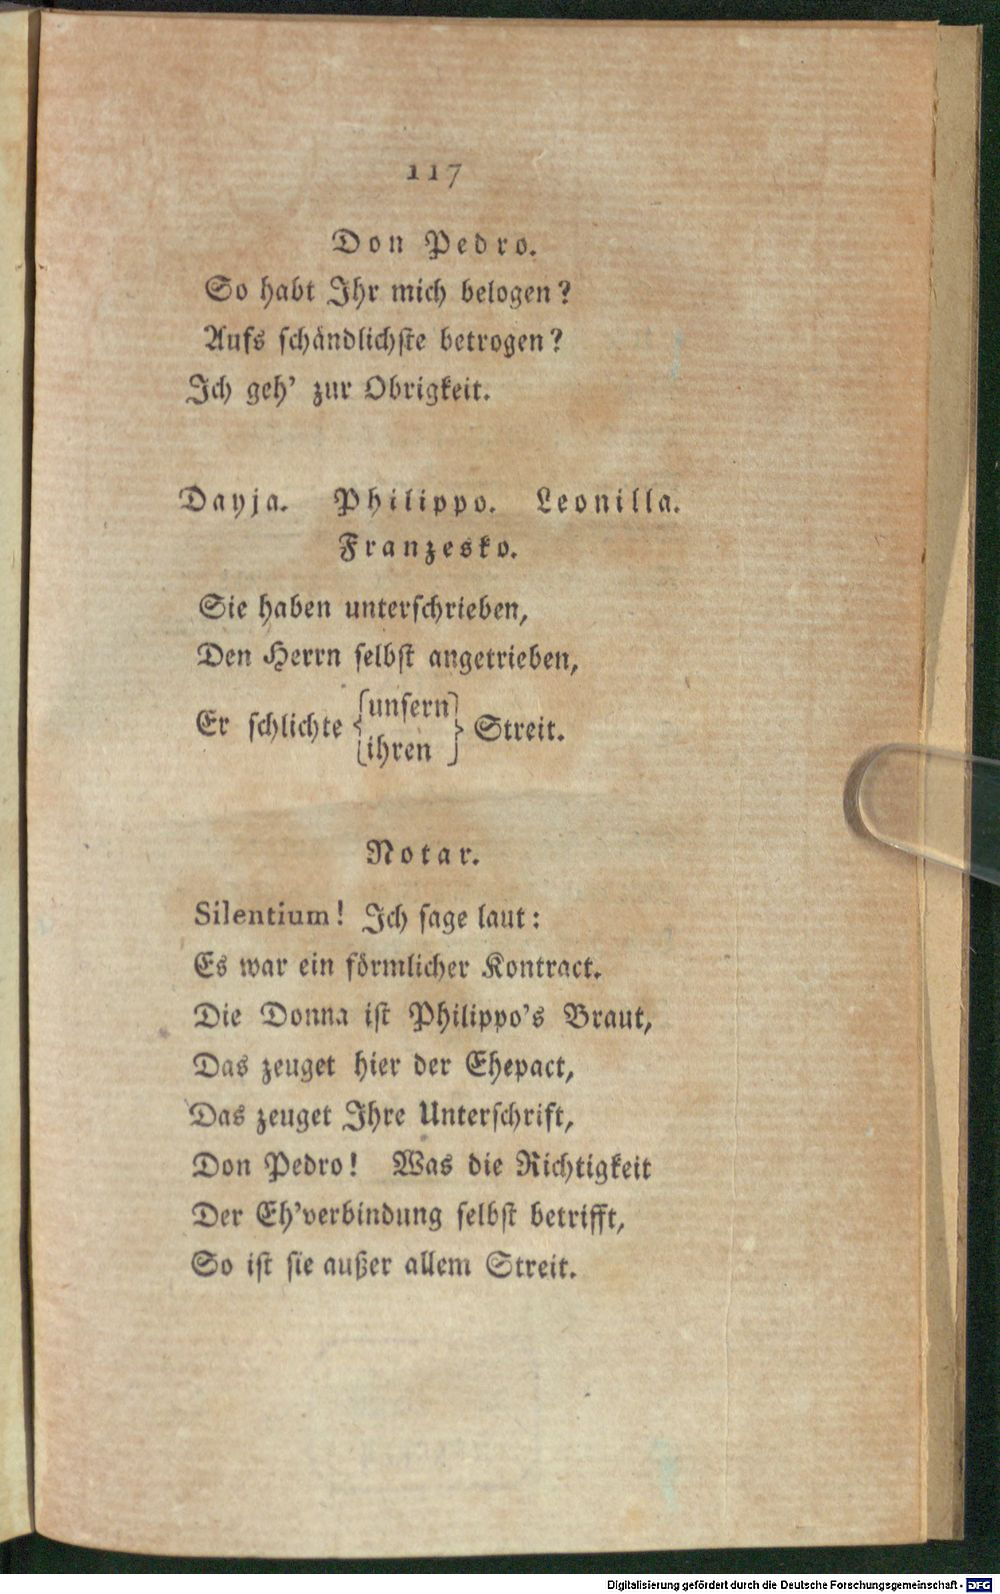 117
Don Pedro.
So habt Ihr mich belogen?
Aufs schändlichste betrogen?
Ich geh' zur Obrigkeit.
Dayja. Philippo. Leonilla.
Franzesko.
Sie haben unterschrieben,
Den Herrn selbst angetrieben,
Er schlichte {unsern} Streit.
{ihren}
Notar.
Silentium! Ich sage laut:
Es war ein förmlicher Kontract.
Die Donna ist Philippo's Braut,
Das zeuget hier der Ehepact,
Das zeuget Ihre Unterschrift,
Don Pedro! Was die Richtigkeit
Der Eh'verbindung selbst betrifft,
So ist sie außer allem Streit.
Digitalisierung gefördert durch die Deutsche Forschungsgemeinschaft - DFG